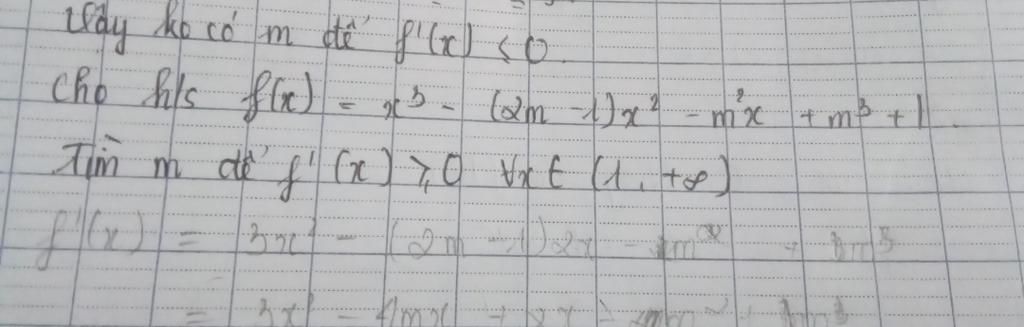 Vậy ko có m để f'(x) ≤ 0.
Cho h/s f(x) = x³ - (2m - 1)x² - m²x + m³ + 1.
Tìm m để f'(x) ≥ 0 ∀x ∈ (1, +∞)
f'(x) = 3x² - (2m - 1)2x -
= 3x² - 4mx + 2x -